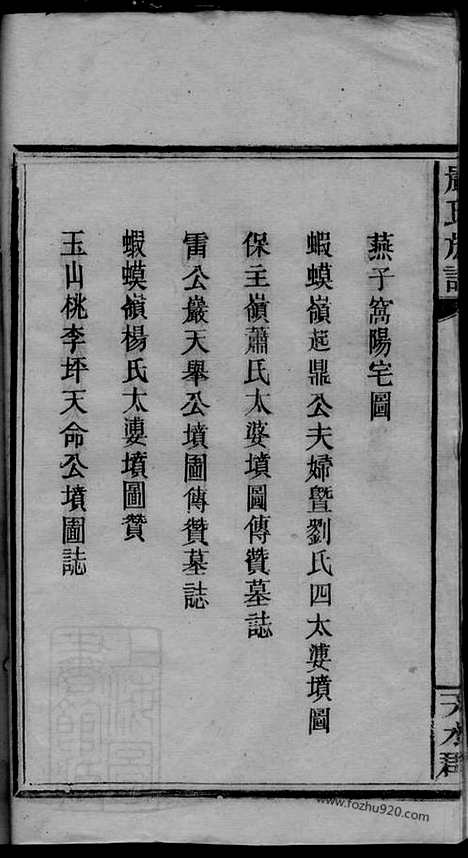 燕子窩陽宅圖
蝦蟆嶺起鼎公夫婦暨劉氏四太婆墳圖
保主嶺蕭氏太婆墳圖傳贊墓誌
雷公巖天舉公墳圖傳贊墓誌
蝦蟆嶺楊氏太婆墳圖贊
玉山桃李坪天命公墳圖誌
天水郡
www.fozhu920.com